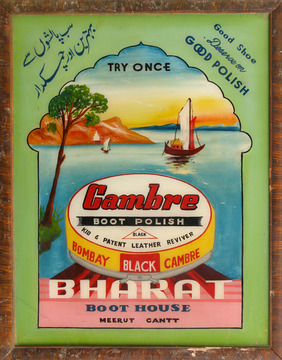 سب پالشوں سے
بہترین اور چمکدار
Good Shoe
Deserve on
GOOD POLISH
TRY ONCE
Cambre
BOOT POLISH
BLACK
KID & PATENT LEATHER REVIVER
BOMBAY BLACK CAMBRE
BHARAT
BOOT HOUSE
MEERUT CANTT